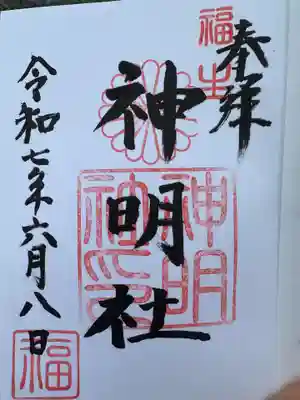 奉拝
福生
神明社
神明社印
令和七年六月八日
福